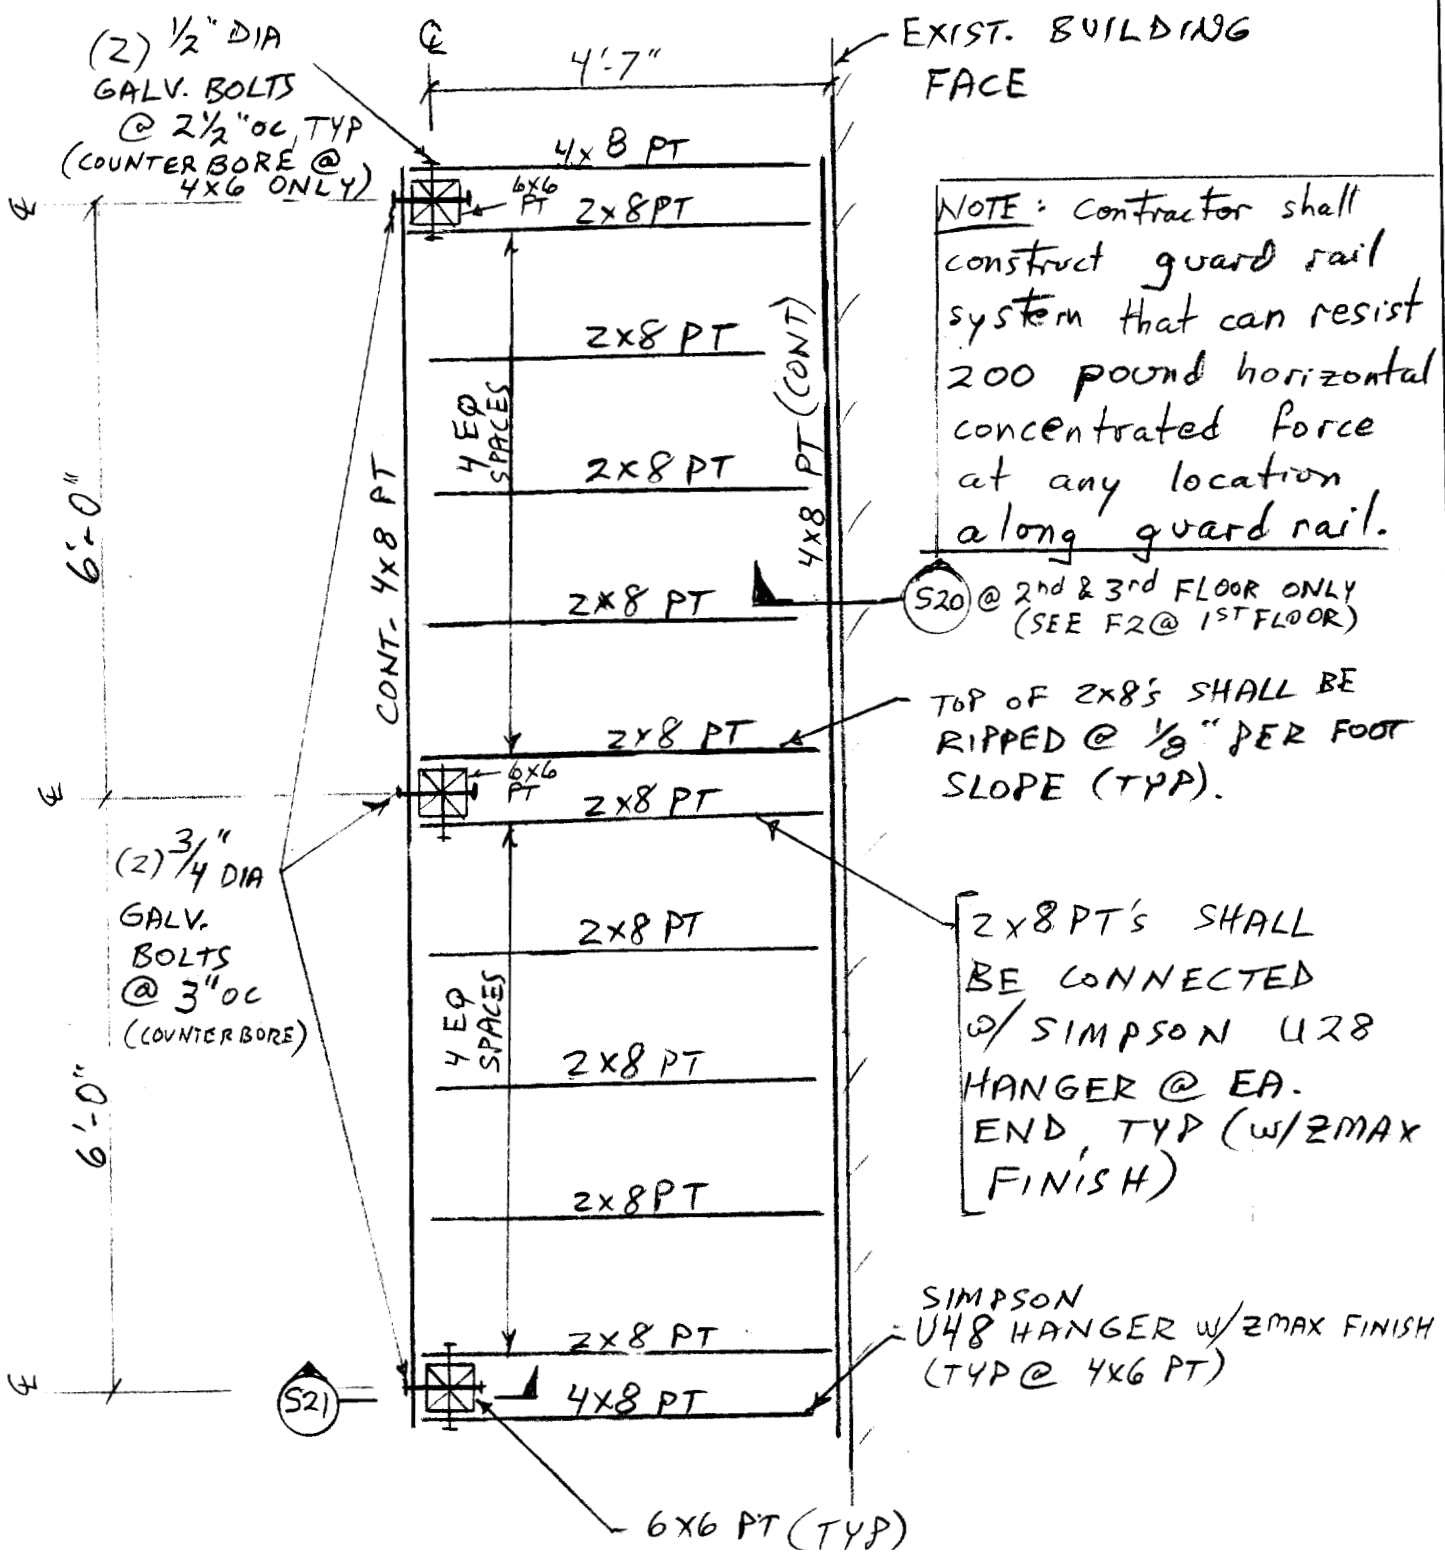 (2) 1/2" DIA
GALV. BOLTS
@ 2 1/2" OC, TYP
(COUNTERBORE @
4X6 ONLY)
℄
4'-7"
EXIST. BUILDING
FACE
4x8 PT
6x6
PT
2x8 PT
℄
NOTE: Contractor shall
construct guard rail
system that can resist
200 pound horizontal
concentrated force
at any location
along guard rail.
2x8 PT
4 EQ
SPACES
6'-0"
CONT. 4x8 PT
2x8 PT
4x8 PT (CONT)
2x8 PT
S20 @ 2nd & 3rd FLOOR ONLY
(SEE F2 @ 1ST FLOOR)
TOP OF 2x8's SHALL BE
RIPPED @ 1/8" PER FOOT
SLOPE (TYP).
2x8 PT
6x6
PT
2x8 PT
℄
(2) 3/4" DIA
GALV.
BOLTS
@ 3" OC
(COUNTERBORE)
2x8 PT
4 EQ
SPACES
2x8 PT'S SHALL
BE CONNECTED
W/ SIMPSON U28
HANGER @ EA.
END, TYP (W/ZMAX
FINISH)
6'-0"
2x8 PT
2x8 PT
SIMPSON
U48 HANGER W/ ZMAX FINISH
(TYP @ 4x6 PT)
2x8 PT
℄
S21
4x8 PT
6X6 PT (TYP)